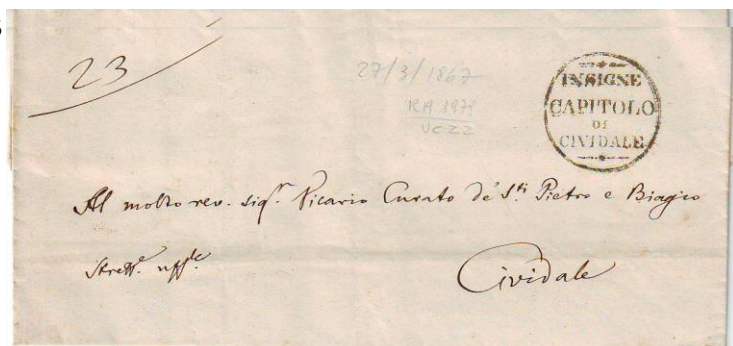 23
27/3/1867
R.A. 1979
VCZZ
INSIGNE
CAPITOLO
DI
CIVIDALE
Al molto rev. sigr. Vicario Curato de' Sti Pietro e Biagio
Strette. uffle.
Cividale